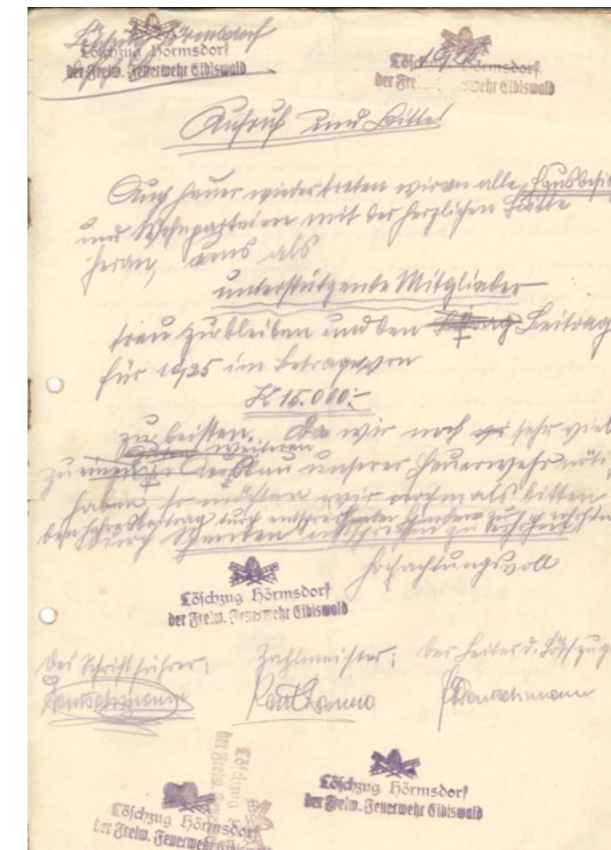 Löschzug Hörmsdorf
der Freiw. Feuerwehr Eibiswald
Löschzug Hörmsdorf
der Freiw. Feuerwehr Eibiswald
Aufruf und Bitte!
Auch heuer wieder treten wir an alle Hausbesit
und Wohnparteien mit der herzlichen Bitte
heran, uns als
unterstützende Mitglieder
treu zu bleiben und den Beitrag
für 1925 im Betrage von
K 15.000.-
zu leisten. Da wir noch sehr viel
zu weiteren unserer Feuerwehr nöti
haben so möchten wir nochmals bitten
den Jahresbeitrag durch
durch Spenden
Hochachtungsvoll
Löschzug Hörmsdorf
der Freiw. Feuerwehr Eibiswald
Der Schriftführer: Zahlmeister: Der Leiter d. Löschzuges
Löschzug Hörmsdorf
der Freiw. Feuerwehr Eibiswald
Löschzug Hörmsdorf
der Freiw. Feuerwehr Eibiswald
Löschzug
der Freiw.